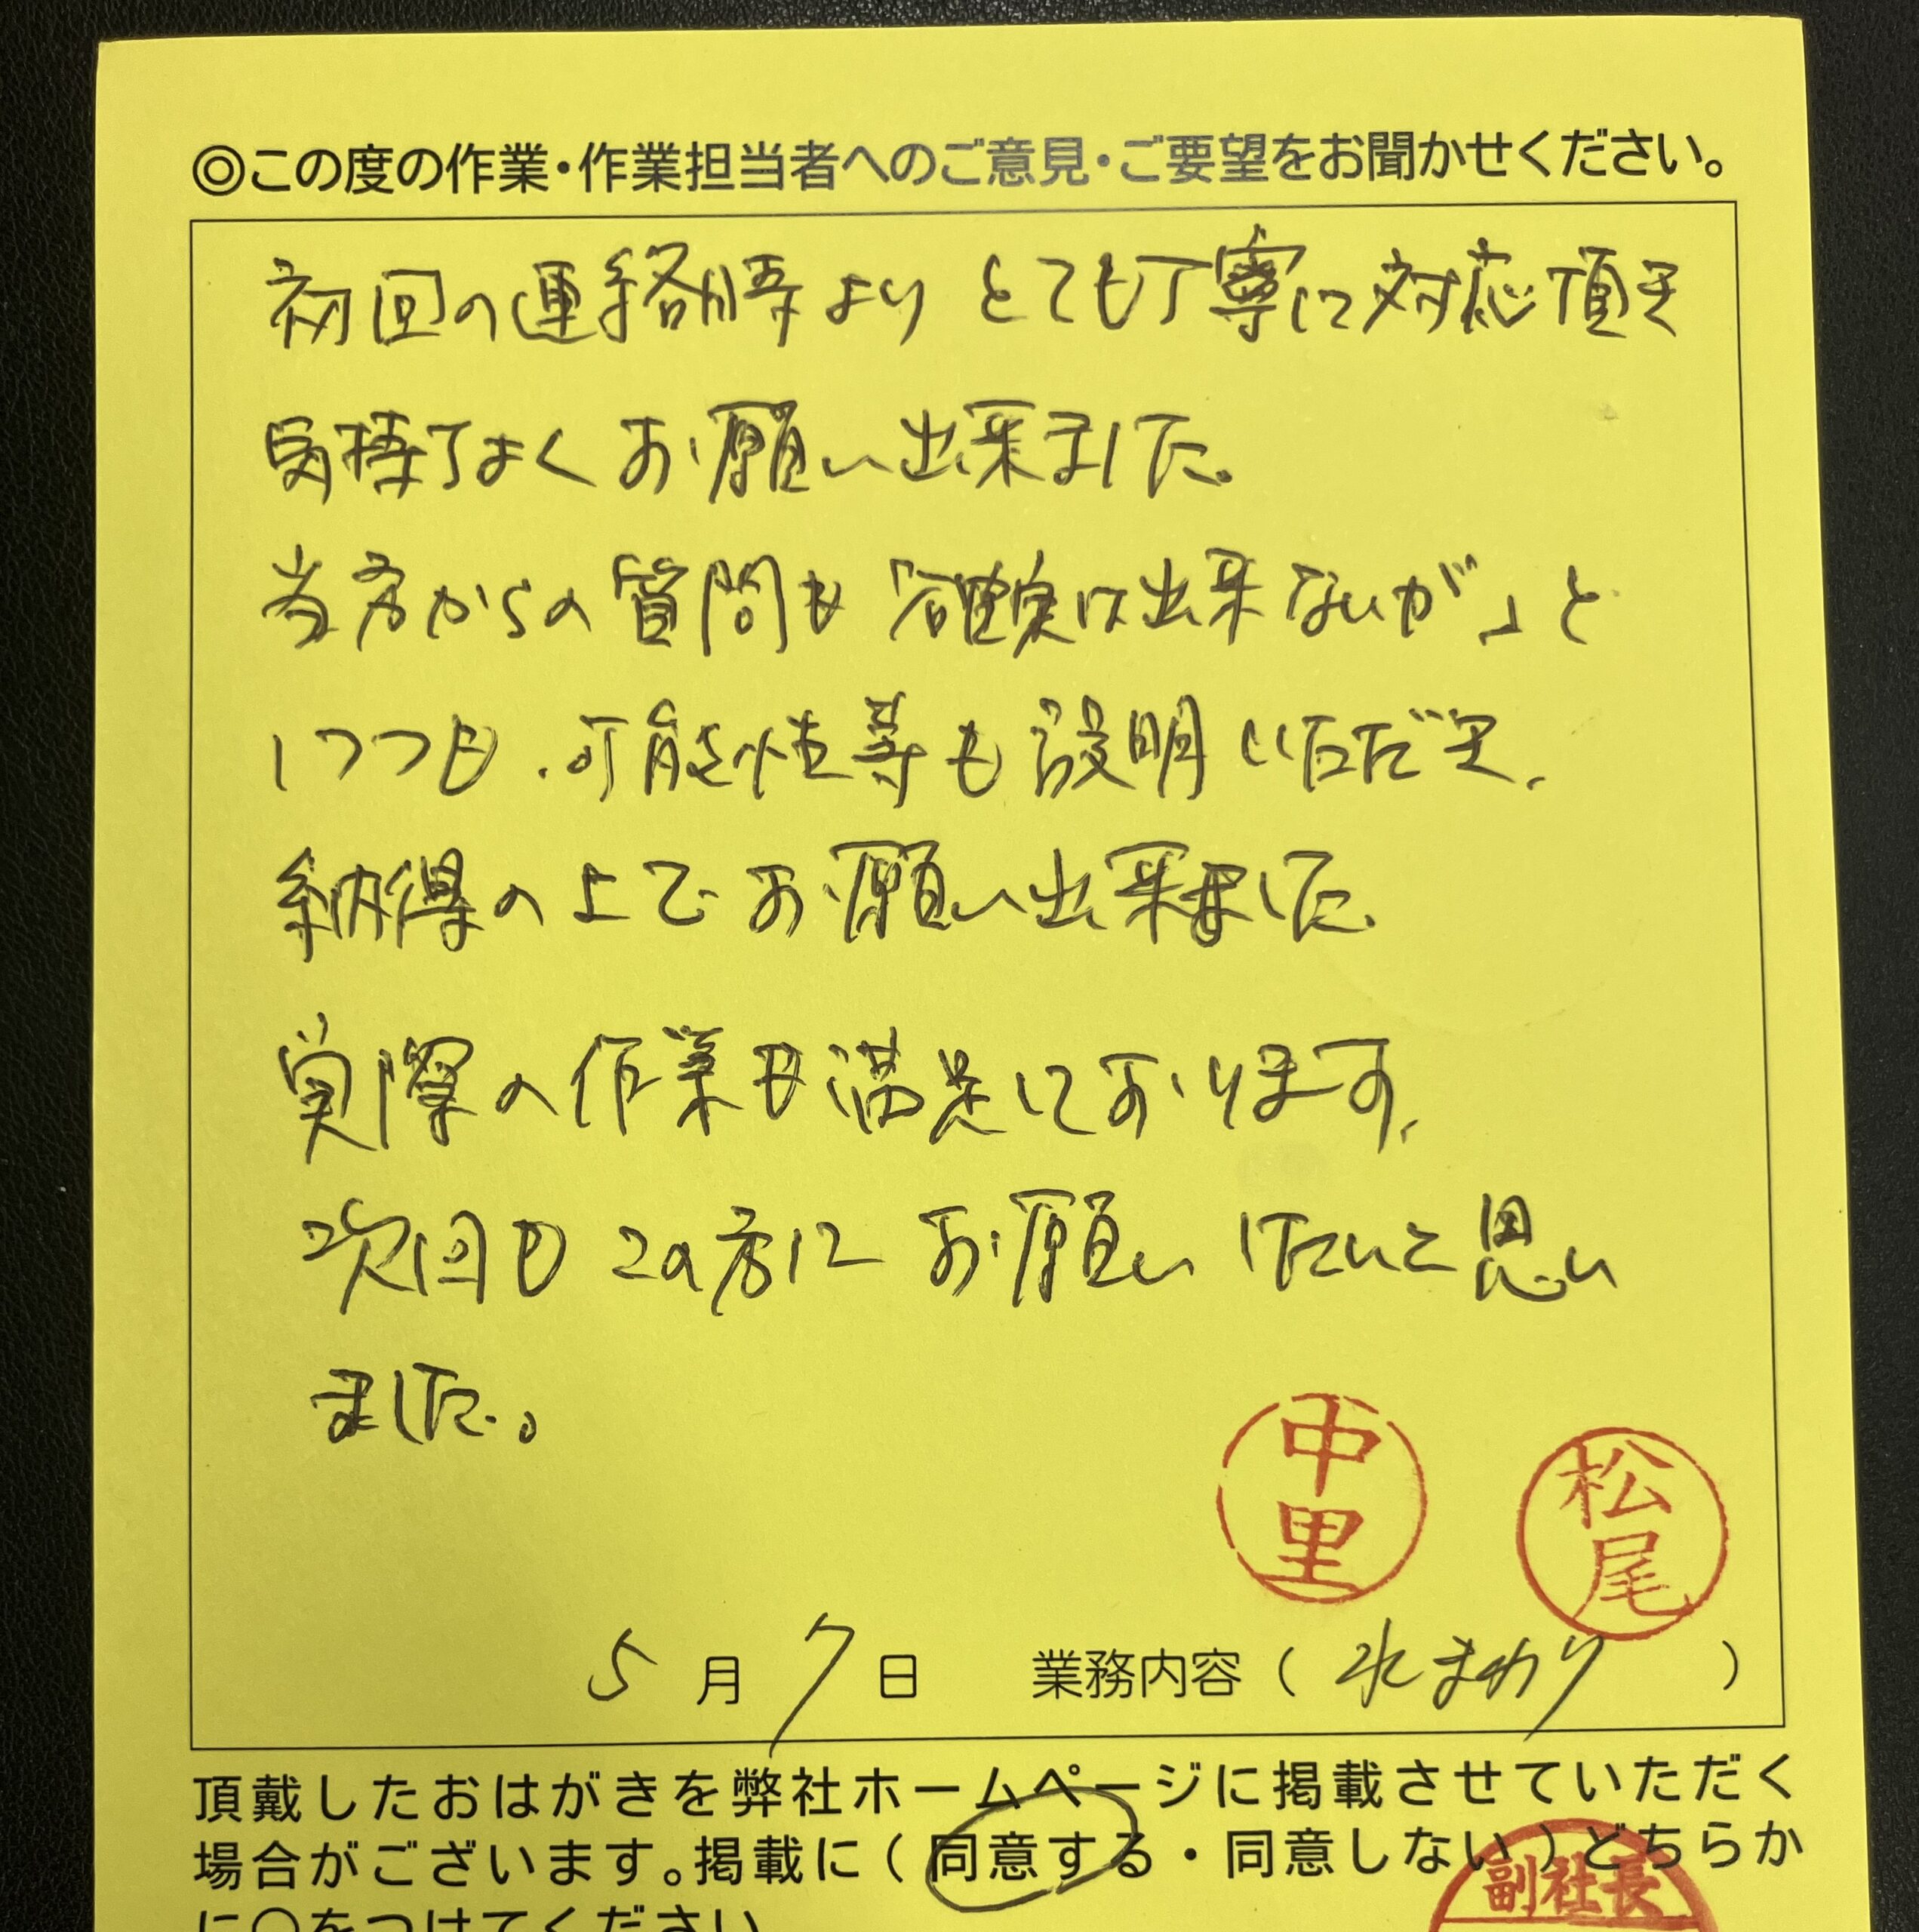 ◎この度の作業・作業担当者へのご意見・ご要望をお聞かせください。
初回の連絡時より とても丁寧に対応頂き
気持ちよく お願い出来ました。
当方からの質問も「確実は出来ないが」と
しつつも、可能性等も説明いただき、
納得の上で お願い出来ました。
実際の作業も満足しております。
次回もこの方に お願いしたいと思い
ました。
中里
松尾
5月7日 業務内容(水まわり)
頂戴したおはがきを弊社ホームページに掲載させていただく
場合がございます。掲載に(同意する・同意しない)どちらか
に○をつけてください
副社長